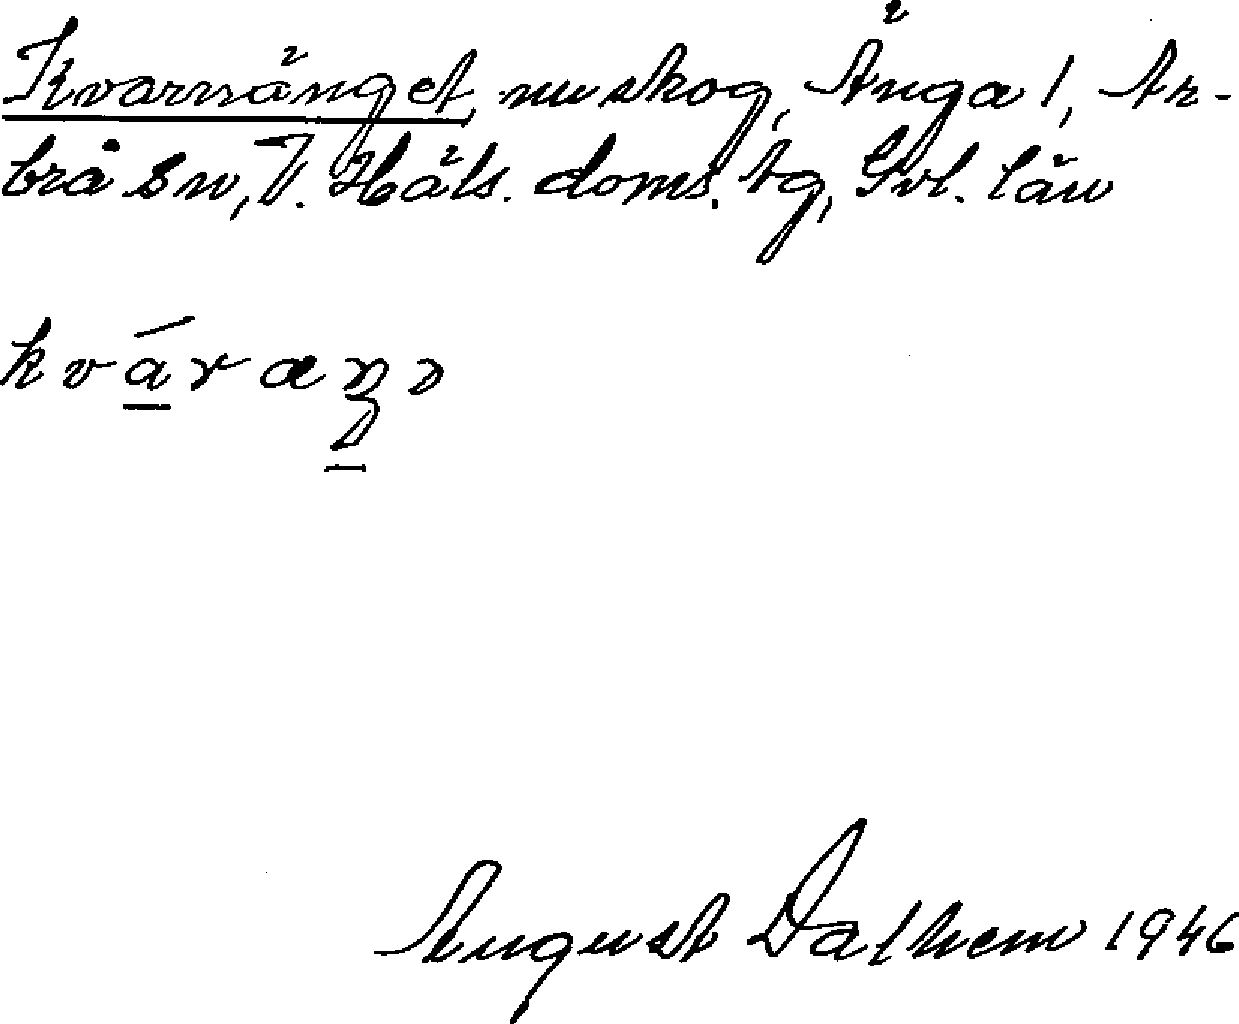 Kvarnänget, nu skog, Änga 1, Ar-
brå sn, V. Häls. doms. tg, Gvl. län
kváræŋɔ
August Dalhem 1946